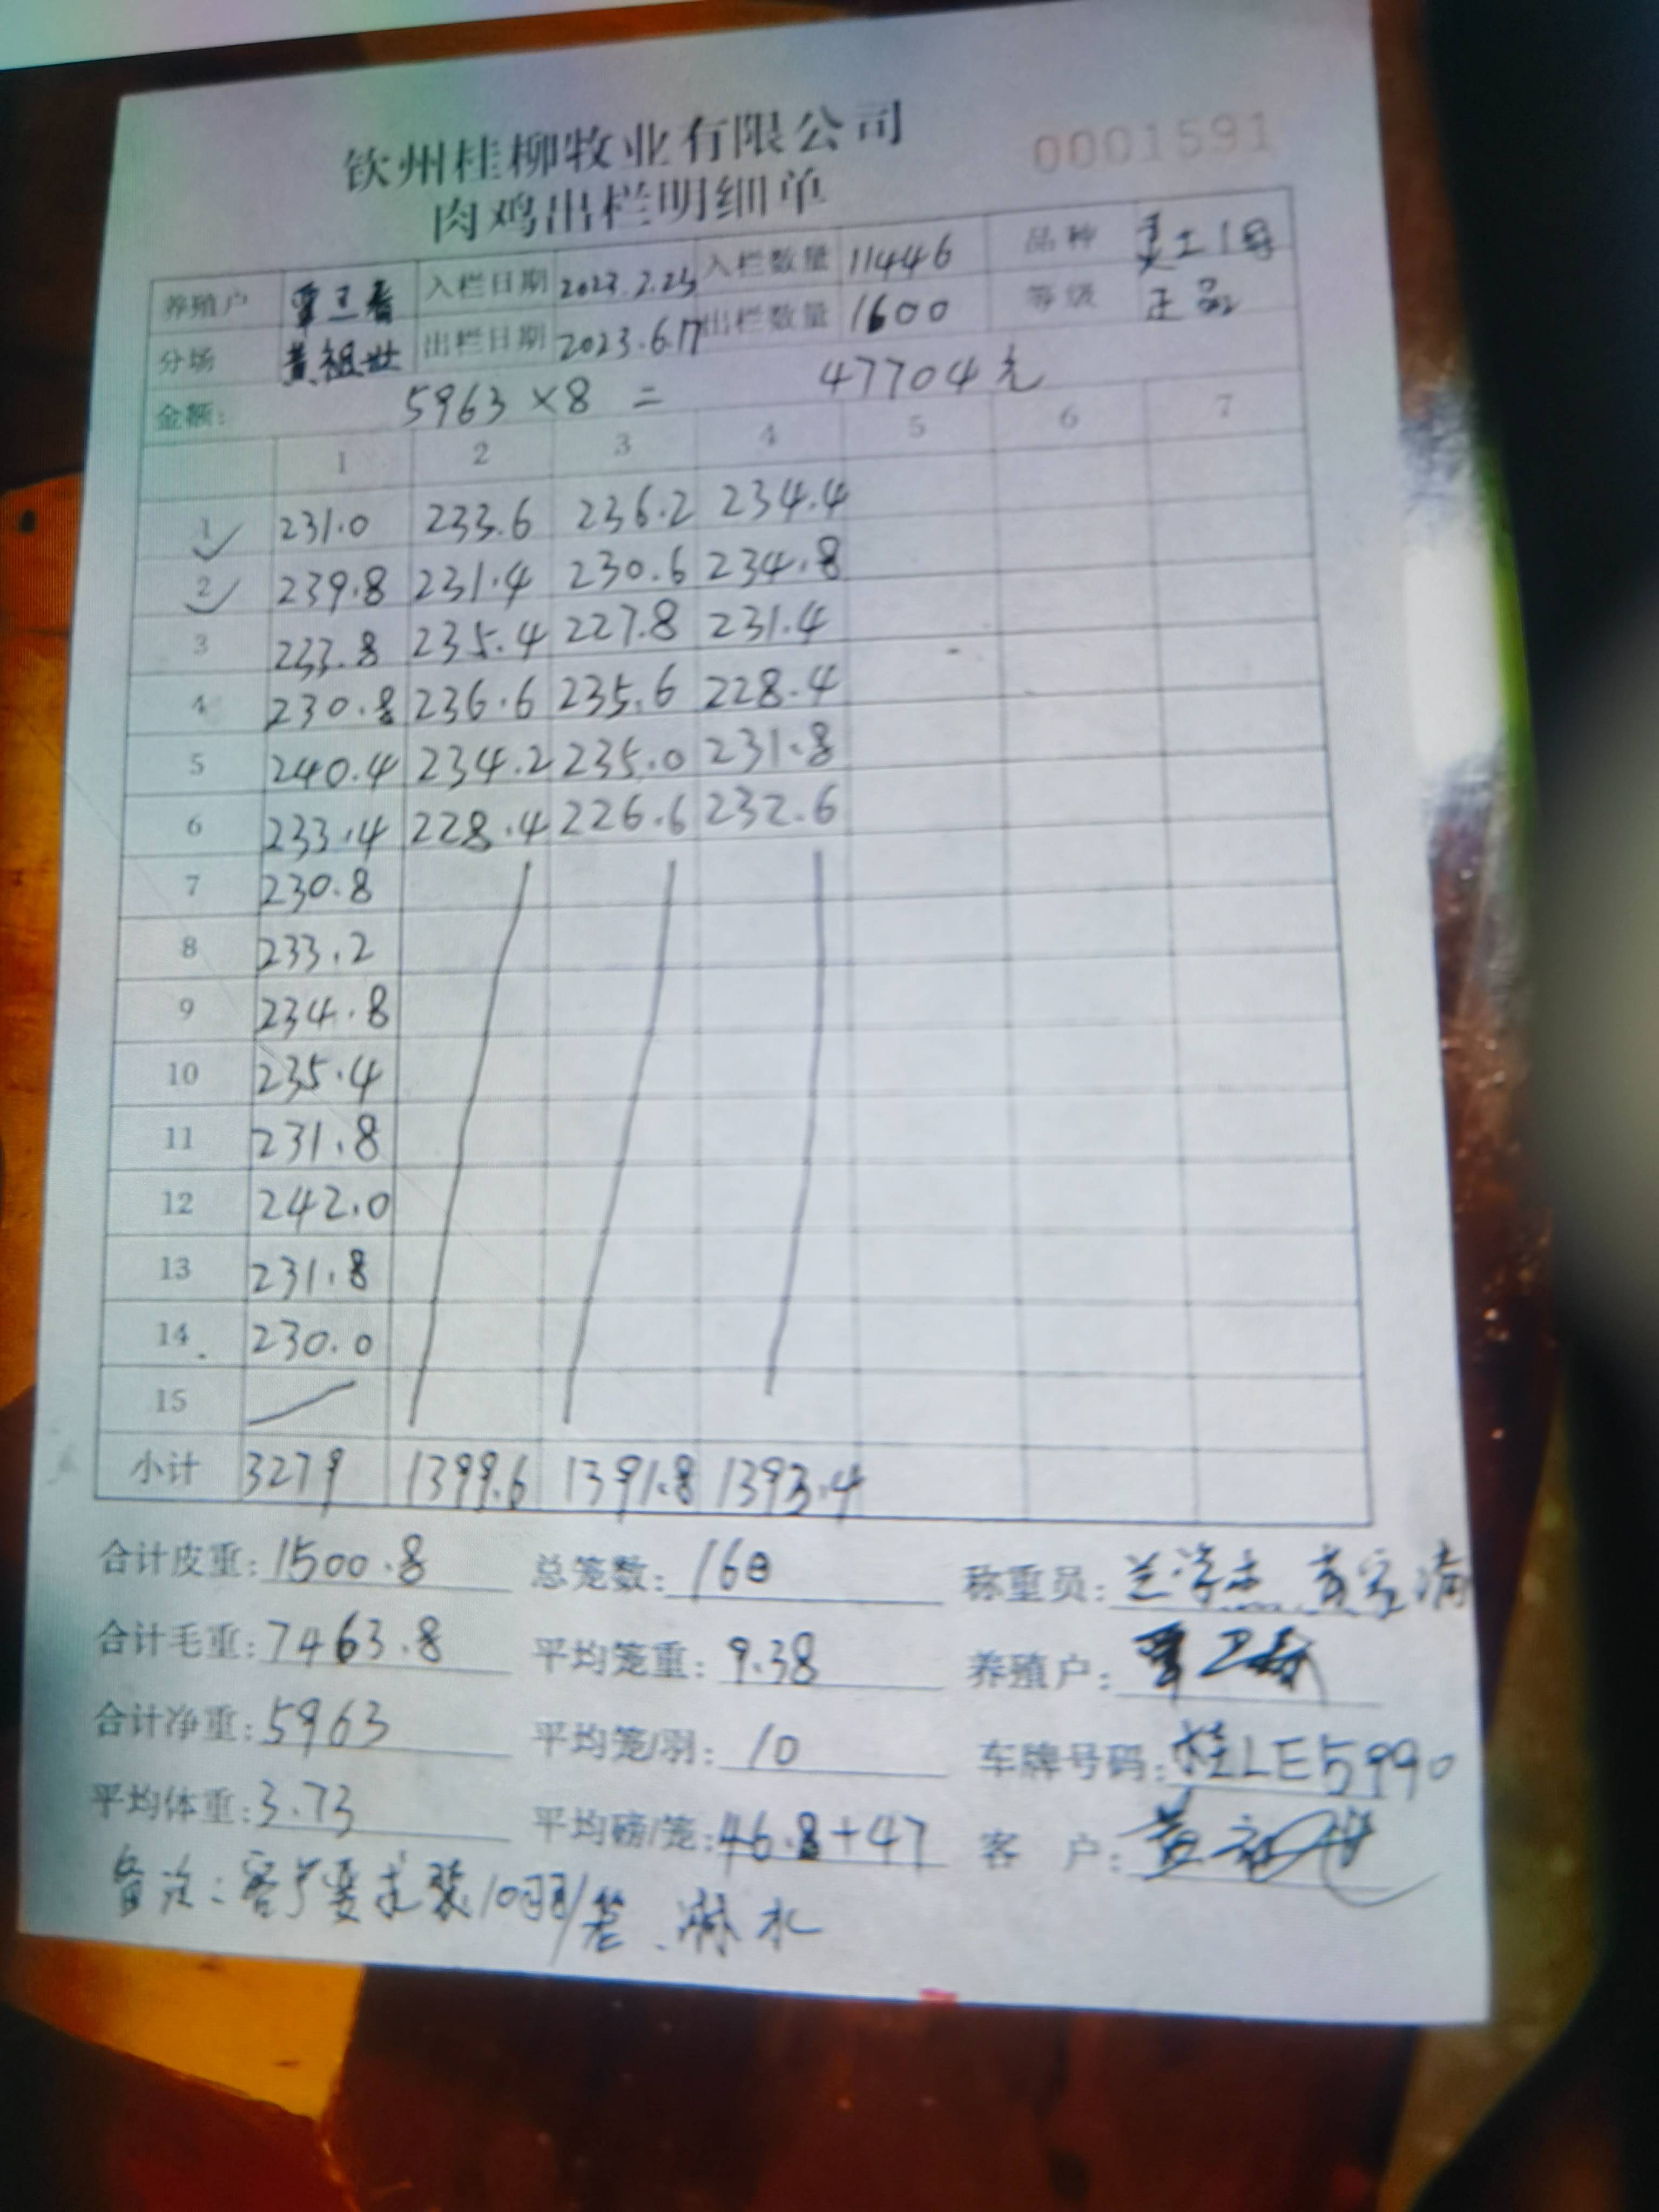 钦州桂柳牧业有限公司
肉鸡出栏明细单
0001591
养殖户 入栏日期 2023.2.25 入栏数量 11446 品种 土1号
分场 黄祖世 出栏日期 2023.6.17 出栏数量 1600 等级 正品
金额: 5963×8= 47704元
1 2 3 4 5 6 7
1 231.0 233.6 236.2 234.4
2 239.8 231.4 230.6 234.8
3 233.8 235.4 227.8 231.4
4 230.8 236.6 235.6 228.4
5 240.4 234.2 235.0 231.8
6 233.4 228.4 226.6 232.6
7 230.8
8 233.2
9 234.8
10 235.4
11 231.8
12 242.0
13 231.8
14 230.0
15
小计 3279 1399.6 1391.8 1393.4
合计皮重: 1500.8 总笼数: 160 称重员:
合计毛重: 7463.8 平均笼重: 9.38 养殖户:
合计净重: 5963 平均笼/羽: 10 车牌号码: 桂LE5990
平均体重: 3.73 平均磅/笼: 46.8+47 客户:
备注:客户要求装10羽/笼、淋水